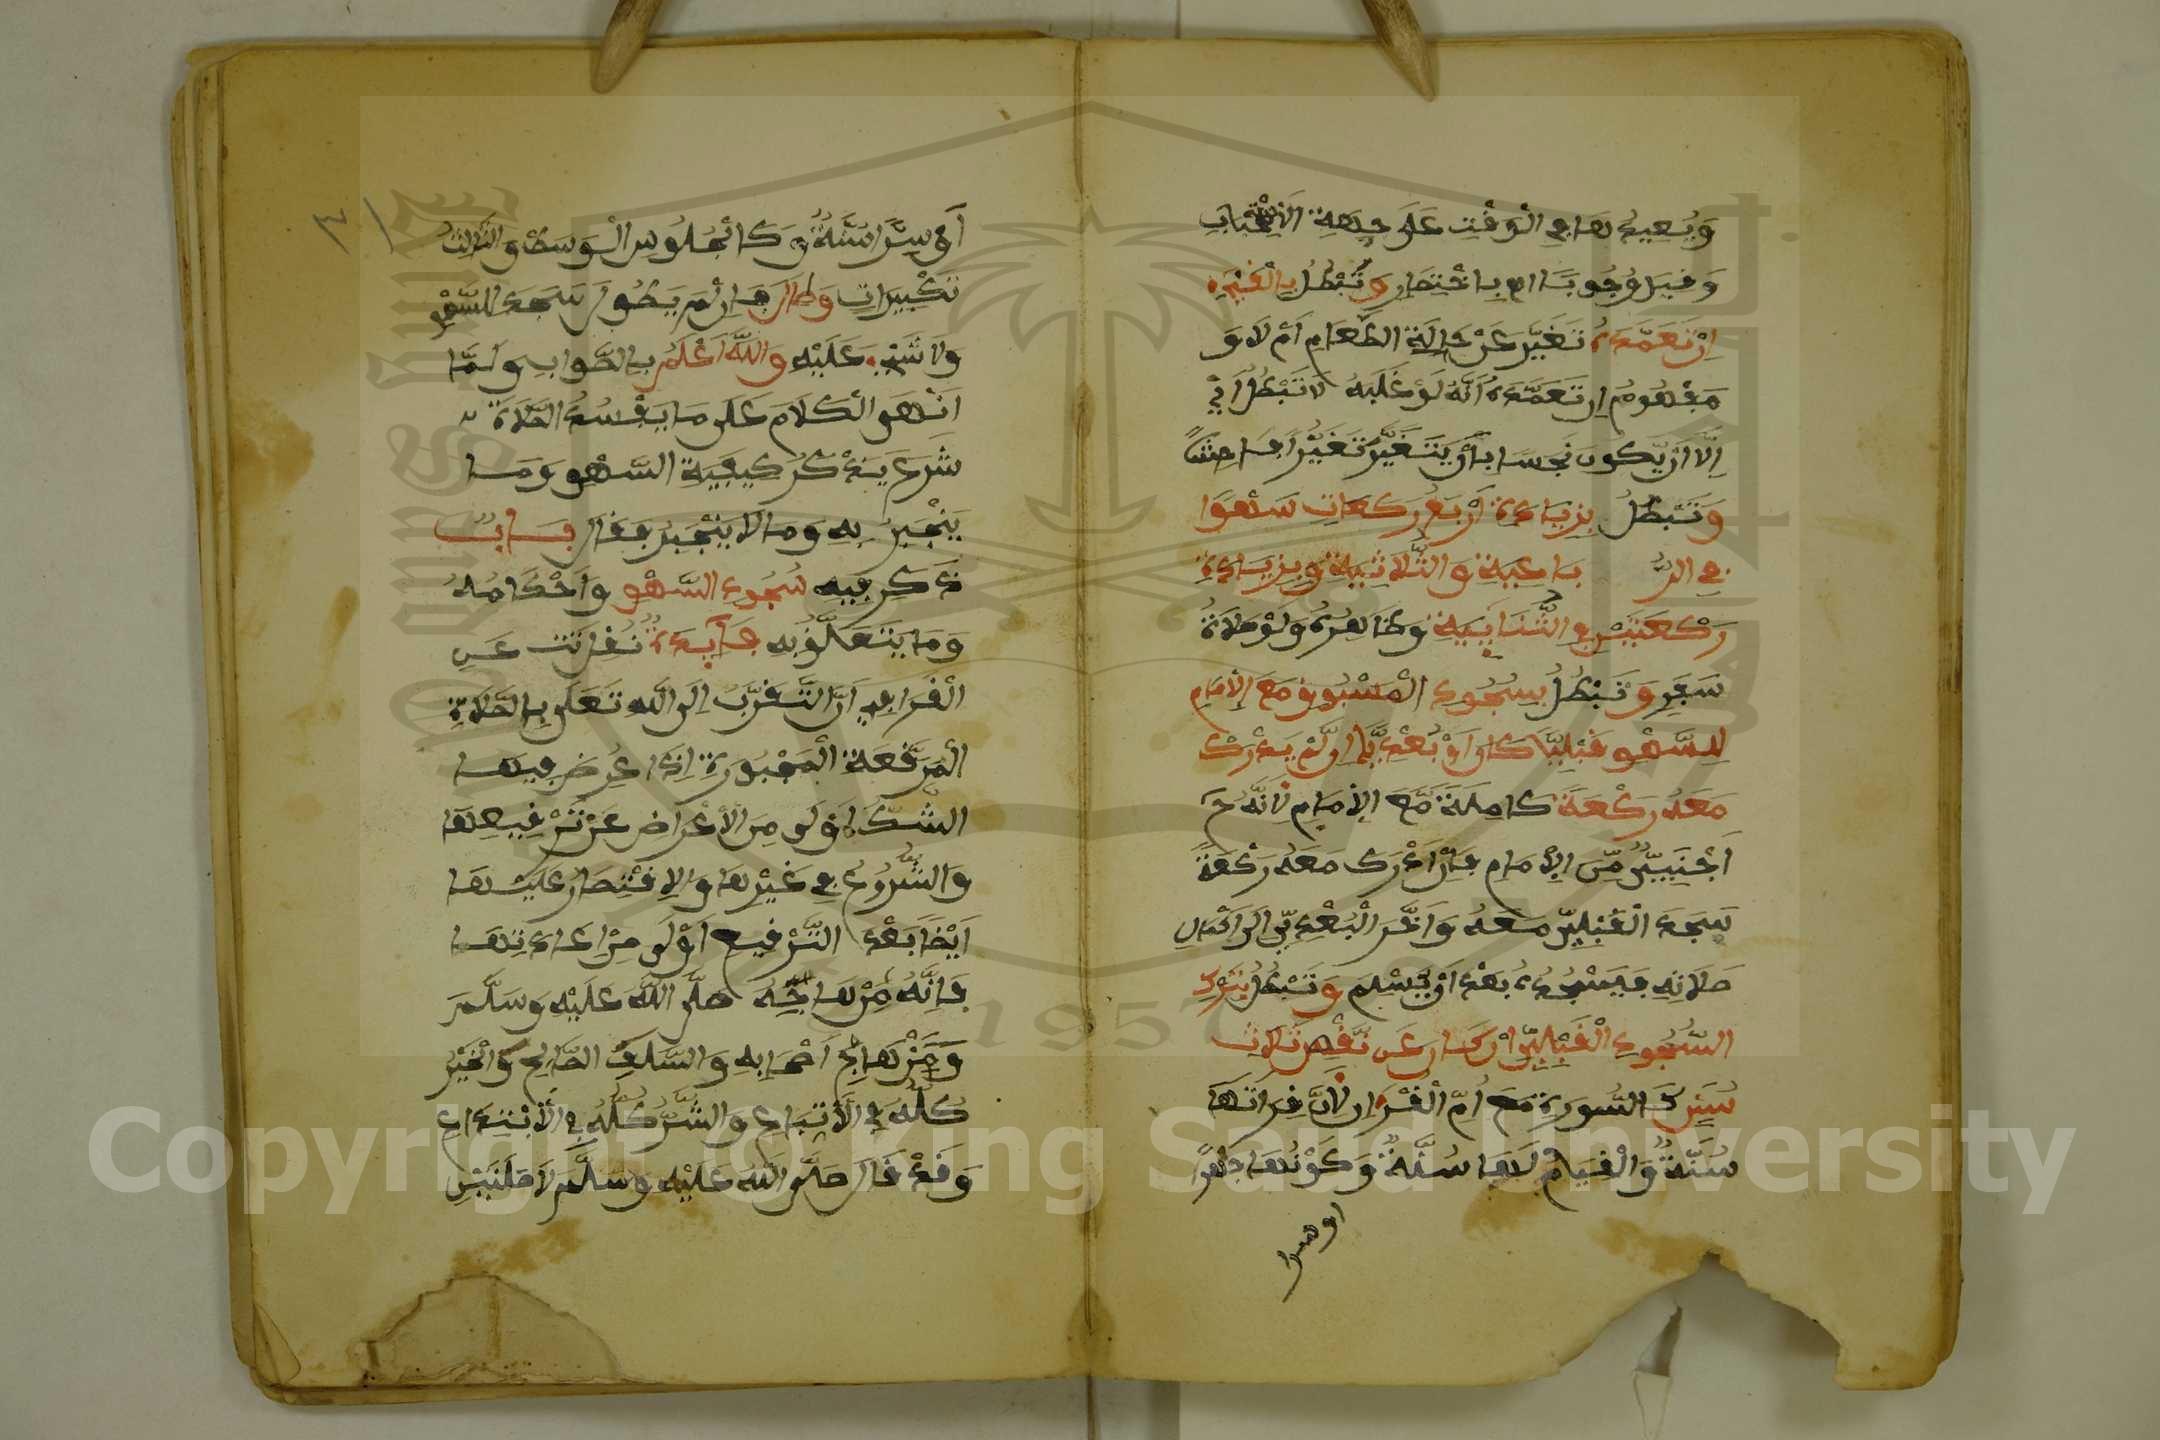 وَيُعِيدُهَا فِي الْوَقْتِ عَلَى جِهَةِ الِاسْتِحْبَابِ
وَقِيلَ وُجُوبًا اه بِاخْتِصَارٍ وَتَبْطُلُ بِالْقَيْءِ
إِنْ تَعَمَّدَهُ تَغَيَّرَ عَنْ حَالَةِ الطَّعَامِ أَمْ لَا وَ
مَفْهُومُ إِنْ تَعَمَّدَهُ أَنَّهُ لَوْ غَلَبَهُ لَا تَبْطُلُ أَيْ
إِلَّا أَنْ يَكُونَ نَجِسًا بِأَنْ يَتَغَيَّرَ تَغَيُّرًا فَاحِشًا
وَتَبْطُلُ بِزِيَادَةِ أَرْبَعِ رَكَعَاتٍ سَهْوًا
فِي الرُّبَاعِيَةِ وَالثُّلَاثِيَةِ وَبِزِيَادَةِ
رَكْعَتَيْنِ فِي الثُّنَائِيَةِ وَظَاهِرُهُ وَلَوْ صَلَاةُ
سَفَرٍ وَتَبْطُلُ بِسُجُودِ الْمَسْبُوقِ مَعَ الْإِمَامِ
لِلسَّهْوِ قَبْلِيًّا كَانَ أَوْ بَعْدِيًّا إِنْ لَمْ يُدْرِكْ
مَعَهُ رَكْعَةً كَامِلَةً مَعَ الْإِمَامِ لِأَنَّهُ ح
أَجْنَبِيٌّ مِنَ الْإِمَامِ فَإِنْ أَدْرَكَ مَعَهُ رَكْعَةً
سَجَدَ الْقَبْلِيَّ مَعَهُ وَأَخَّرَ الْبَعْدِيَّ إِلَى إِكْمَالِ
صَلَاتِهِ فَيَسْجُدُهُ بَعْدَ أَنْ يُسَلِّمَ وَتَبْطُلُ بِتَرْكِ
السُّجُودِ الْقَبْلِيِّ إِنْ كَانَ عَنْ نَقْصِ ثَلَاثِ
سُنَنٍ كَالسُّورَةِ مَعَ أُمِّ الْقُرْآنِ لِأَنَّ قِرَاءَتَهَا
سُنَّةٌ وَالْقِيَامُ لَهَا سُنَّةٌ وَكَوْنُهَا جَهْرًا
او سرا
٣١
أَوْ سِرًّا سُنَّةٌ وَكَالْجُلُوسِ الْوَسَطِ وَالثَّلَاثِ
تَكْبِيرَاتٍ وَطَالَ فَإِنْ لَمْ يَطُلْ سَجَدَ لِلسَّهْوِ
وَلَا شَيْءَ عَلَيْهِ وَاللَّهُ أَعْلَمُ بِالصَّوَابِ وَلَمَّا
أَنْهَى الْكَلَامَ عَلَى مَا يُفْسِدُ الصَّلَاةَ
شَرَعَ يَذْكُرُ كَيْفِيَةَ السَّهْوِ وَمَا
يَنْجَبِرُ بِهِ وَمَا لَا يَنْجَبِرُ فَقَالَ بَابٌ
ذَكَرَ فِيهِ سُجُودَ السَّهْوِ وَأَحْكَامَهُ
وَمَا يَتَعَلَّقُ بِهِ فَائِدَةٌ نُقِلَتْ عَنِ
الْقَرَافِي أَنَّ التَّقَرُّبَ إِلَى اللَّهِ تَعَلَى بِالصَّلَاةِ
الْمُرَقَّعَةِ الْمَجْبُورَةِ إِذَا عَرَضَ فِيهَا
الشَّكُّ أَوْلَى مِنَ الْإِعْرَاضِ عَنْ تَرْقِيعِهَا
وَالشُّرُوعِ فِي غَيْرِهَا وَالِاقْتِصَارُ عَلَيْهَا
أَيْضًا بَعْدَ التَّرْقِيعِ أَوْلَى مِنْ إِعَادَتِهَا
فَإِنَّهُ مِنْهَاجُهُ صَلَّى اللَّهُ عَلَيْهِ وَسَلَّمَ
وَمِنْهَاجُ أَصْحَابِهِ وَالسَّلَفِ الصَّالِحِ وَالْخَيْرُ
كُلُّهُ فِي الِاتِّبَاعِ وَالشَّرُّ كُلُّهُ فِي الِابْتِدَاعِ
وَقَدْ قَالَ صَلَّى اللَّهُ عَلَيْهِ وَسَلَّمَ لَا صَلَاتَيْنِ
Copyright © King Saud University
1957